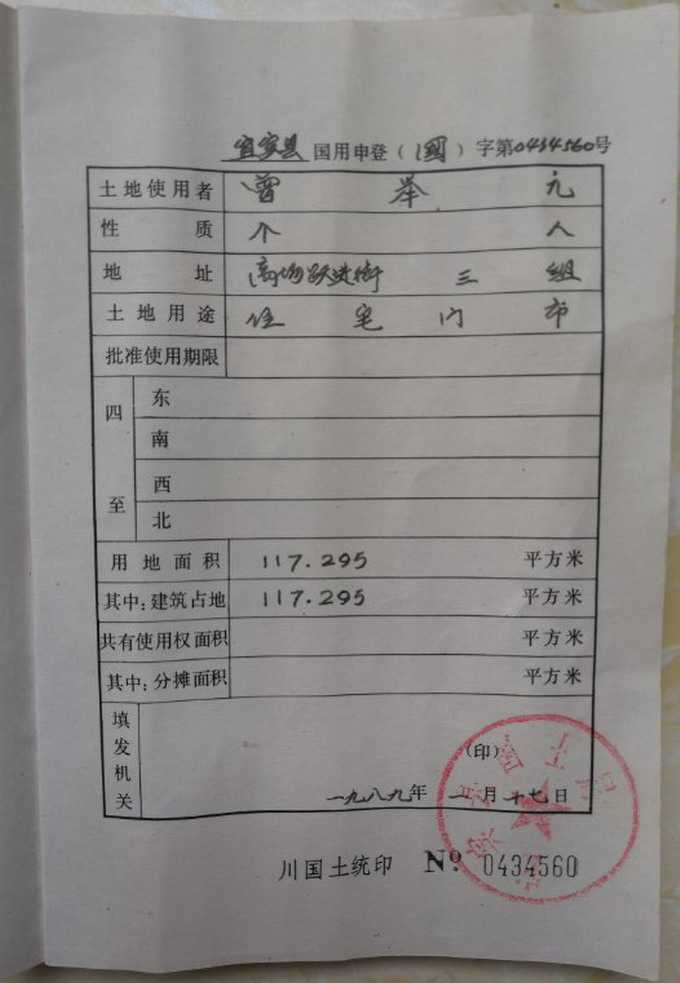 宜宾县国用申登(1国)字第0434560号
土地使用者 曾举元
性质 个人
地址 高场跃进街三组
土地用途 住宅门市
批准使用期限
四至
东
南
西
北
用地面积 117.295 平方米
其中:建筑占地 117.295 平方米
共有使用权面积 平方米
其中:分摊面积 平方米
填发机关
(印)
一九八九年 月十七日
川国土统印 Nº 0434560